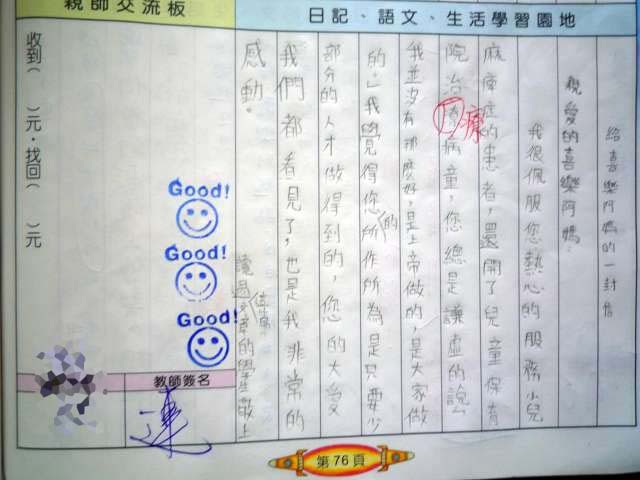 日記、語文、生活學習園地
給喜樂阿媽的一封信
親愛的喜樂阿媽:
我很佩服您熱心的服務小兒
麻痺症的患者,還開了兒童保育
院治療病童,您總是謙虛的說:「
我並沒有那麼好,是上帝做的,是大家做
的。」我覺得您所的作所為是只要少
部分的人才做得到的,您的大愛
我們都看見了,也是我非常的
感動。
讀過文章的學生敬上
佳宗
療
親師交流板
收到( )元,找回( )元
Good!
Good!
Good!
教師簽名
連
第76頁